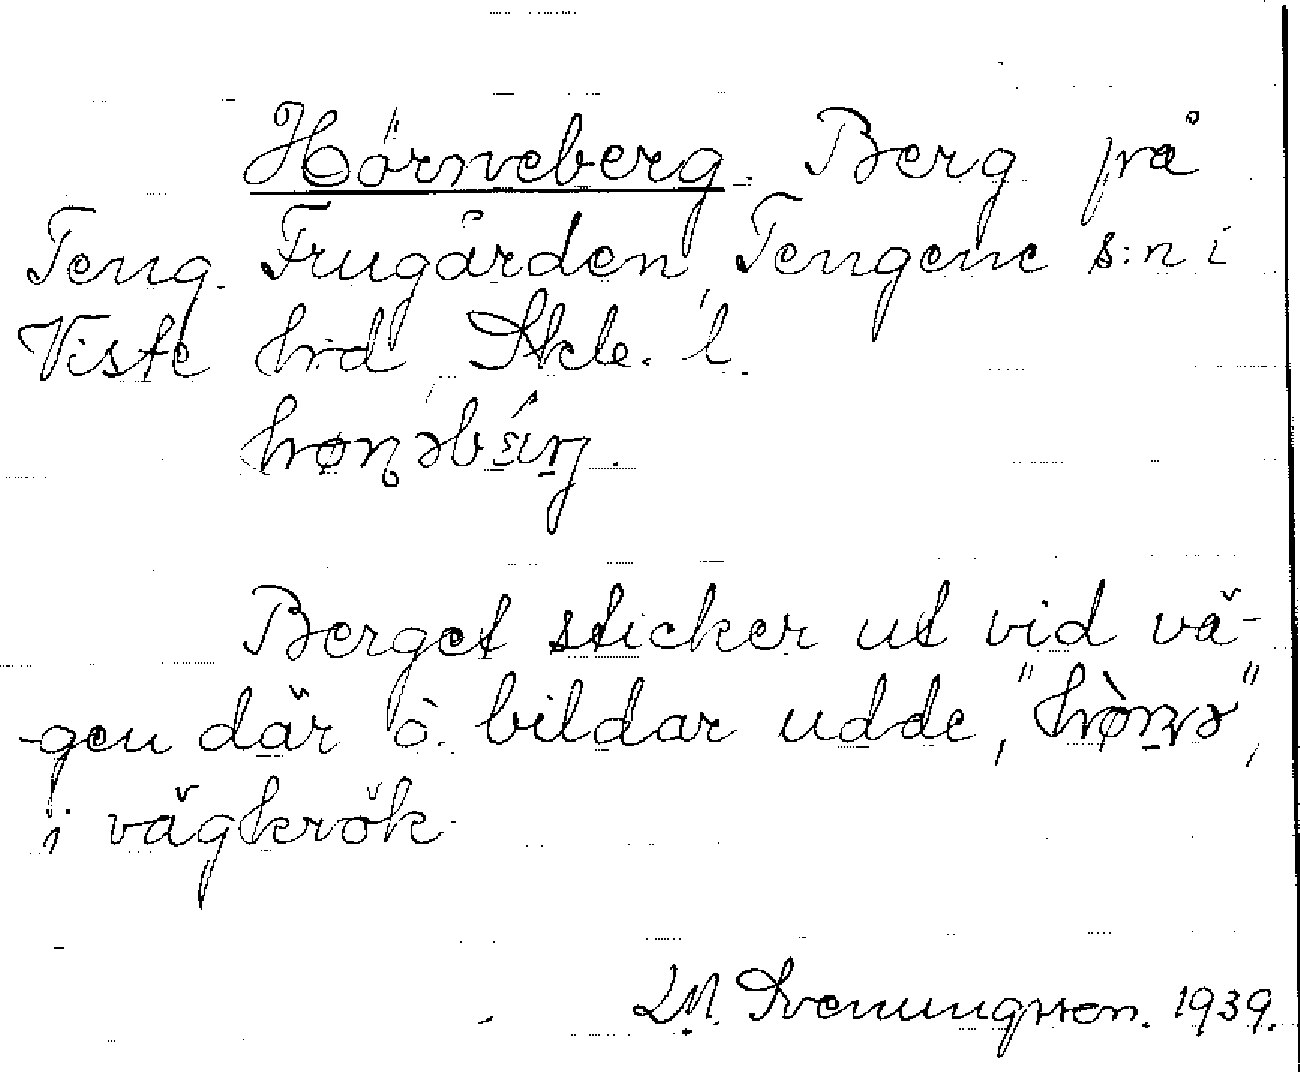 Hörneberg. Berg på
Teng. Frugården, Tengene s:n i
Viste hrd, Skb. l.
Berget sticker ut vid vä-
-gen där o. bildar udde, "
i vägkrök.
L.M. Svenungsson. 1939.